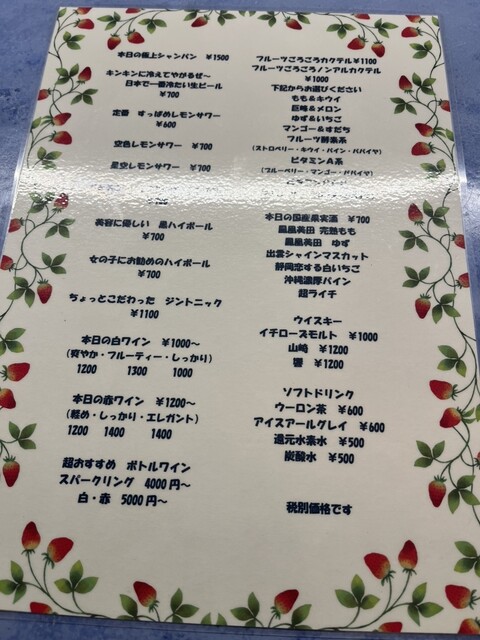 本日の極上シャンパン ¥1500
キンキンに冷えてやがるぜ～
日本で一番冷たい生ビール
¥700
定番 すっぱめレモンサワー
¥600
空色レモンサワー ¥700
星空レモンサワー ¥700
美容に優しい 黒ハイボール
¥700
女の子にお勧めのハイボール
¥700
ちょっとこだわった ジントニック
¥1100
本日の白ワイン ¥1000～
(爽やか・フルーティー・しっかり)
1200 1300 1000
本日の赤ワイン ¥1200～
(軽め・しっかり・エレガント)
1200 1400 1400
超おすすめ ボトルワイン
スパークリング 4000円～
白・赤 5000円～
フルーツごろごろカクテル¥1100
フルーツごろごろノンアルカクテル
¥1000
下記からお選びください
もも&キウイ
巨峰&メロン
ゆず&いちご
マンゴー&すだち
フルーツ酵素系
(ストロベリー・キウイ・パイン・パパイヤ)
ビタミンA系
(ブルーベリー・マンゴー・パパイヤ)
本日の国産果実酒 ¥700
鳳凰美田 完熟もも
鳳凰美田 ゆず
出雲シャインマスカット
静岡恋する白いちご
沖縄濃厚パイン
超ライチ
ウイスキー
イチローズモルト ¥1000
山崎 ¥1200
響 ¥1200
ソフトドリンク
ウーロン茶 ¥600
アイスアールグレイ ¥600
還元水素水 ¥500
炭酸水 ¥500
税別価格です